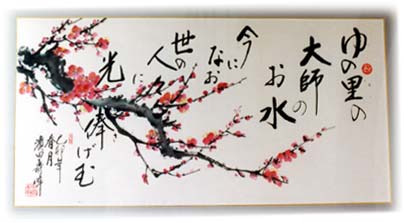 ゆの里の
大師の
お水
今に
なお
世の
人々に
光
捧げむ
春月